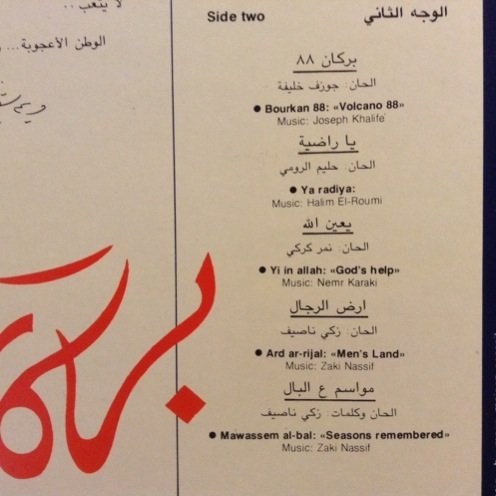 لا يتعب ..
الوطن الأعجوبة...
Side two
الوجه الثاني
بركان ٨٨
الحان: جوزف خليفة
● Bourkan 88: «Volcano 88»
Music: Joseph Khalifé
يا راضية
الحان: حليم الرومي
● Ya radiya:
Music: Halim El-Roumi
يعين الله
الحان: نمر كركي
● Yi in allah: «God's help»
Music: Nemr Karaki
ارض الرجال
الحان: زكي ناصيف
● Ard ar-rijal: «Men's Land»
Music: Zaki Nassif
مواسم ع البال
الحان وكلمات: زكي ناصيف
● Mawassem al-bal: «Seasons remembered»
Music: Zaki Nassif